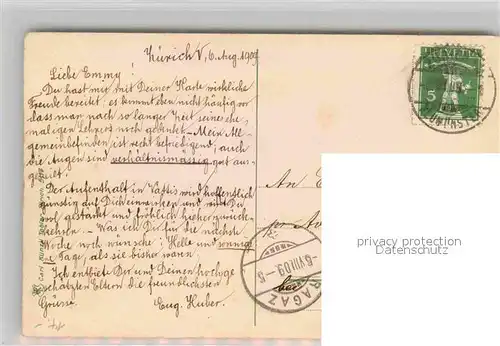 Zürich V, 6. Aug. 1909
Liebe Emmy!
Du hast mir mit Deiner Karte wirkliche
Freude bereitet, es kommt eben nicht häufig vor
dass man nach so langer Zeit seines ehe-
maligen Lehrers noch gedenkt. - Mein All-
gemeinbefinden ist recht befriedigend; auch
die Augen sind verhältnismässig gut aus-
geheilt.
Der Aufenthalt in Vättis wird hoffentlich
günstig auf Dich einwirken und wirst Du
wol gestärkt und fröhlich hieher zurück-
kehren. - Was ich Dir für die nächste
Woche noch wünsche: Helle und sonnige
Tage, als sie bisher waren.
Ich entbiete Dir und Deinen hochge-
schätzten Eltern die freundlichsten
Grüsse.
Eug. Huber.
HELVETIA
5
An
per
RAGAZ
-6.VIII.09.-5
privacy protection
Datenschutz
Carl Künzli